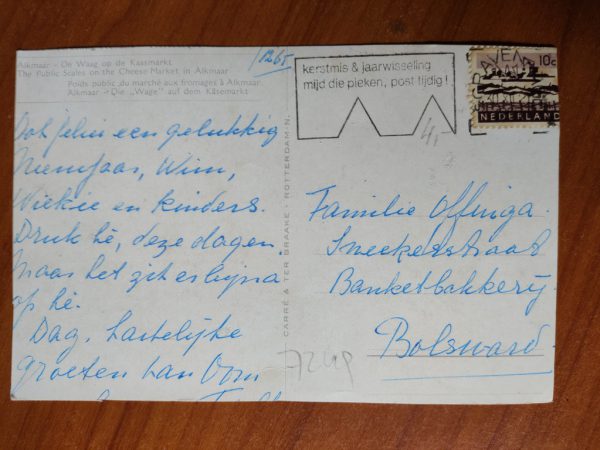 Alkmaar - De Waag op de Kaasmarkt
The Public Scales on the Cheese-Market in Alkmaar
Poids public du marché aux fromages à Alkmaar
Alkmaar - Die „Wage" auf dem Käsemarkt
Ook jelui een gelukkig
Nieuwjaar, Wim,
Wiekie en kinders.
Druk hè, deze dagen.
Maar het zit er bijna
op hè.
Dag, hartelijke
groeten van Oom
CARRÉ & TER BRAAKE - ROTTERDAM-N.
kerstmis & jaarwisseling
mijd die pieken, post tijdig!
10c
NEDERLAND
Familie Offinga.
Sneekerstraat
Banketbakkerij.
Bolsward.